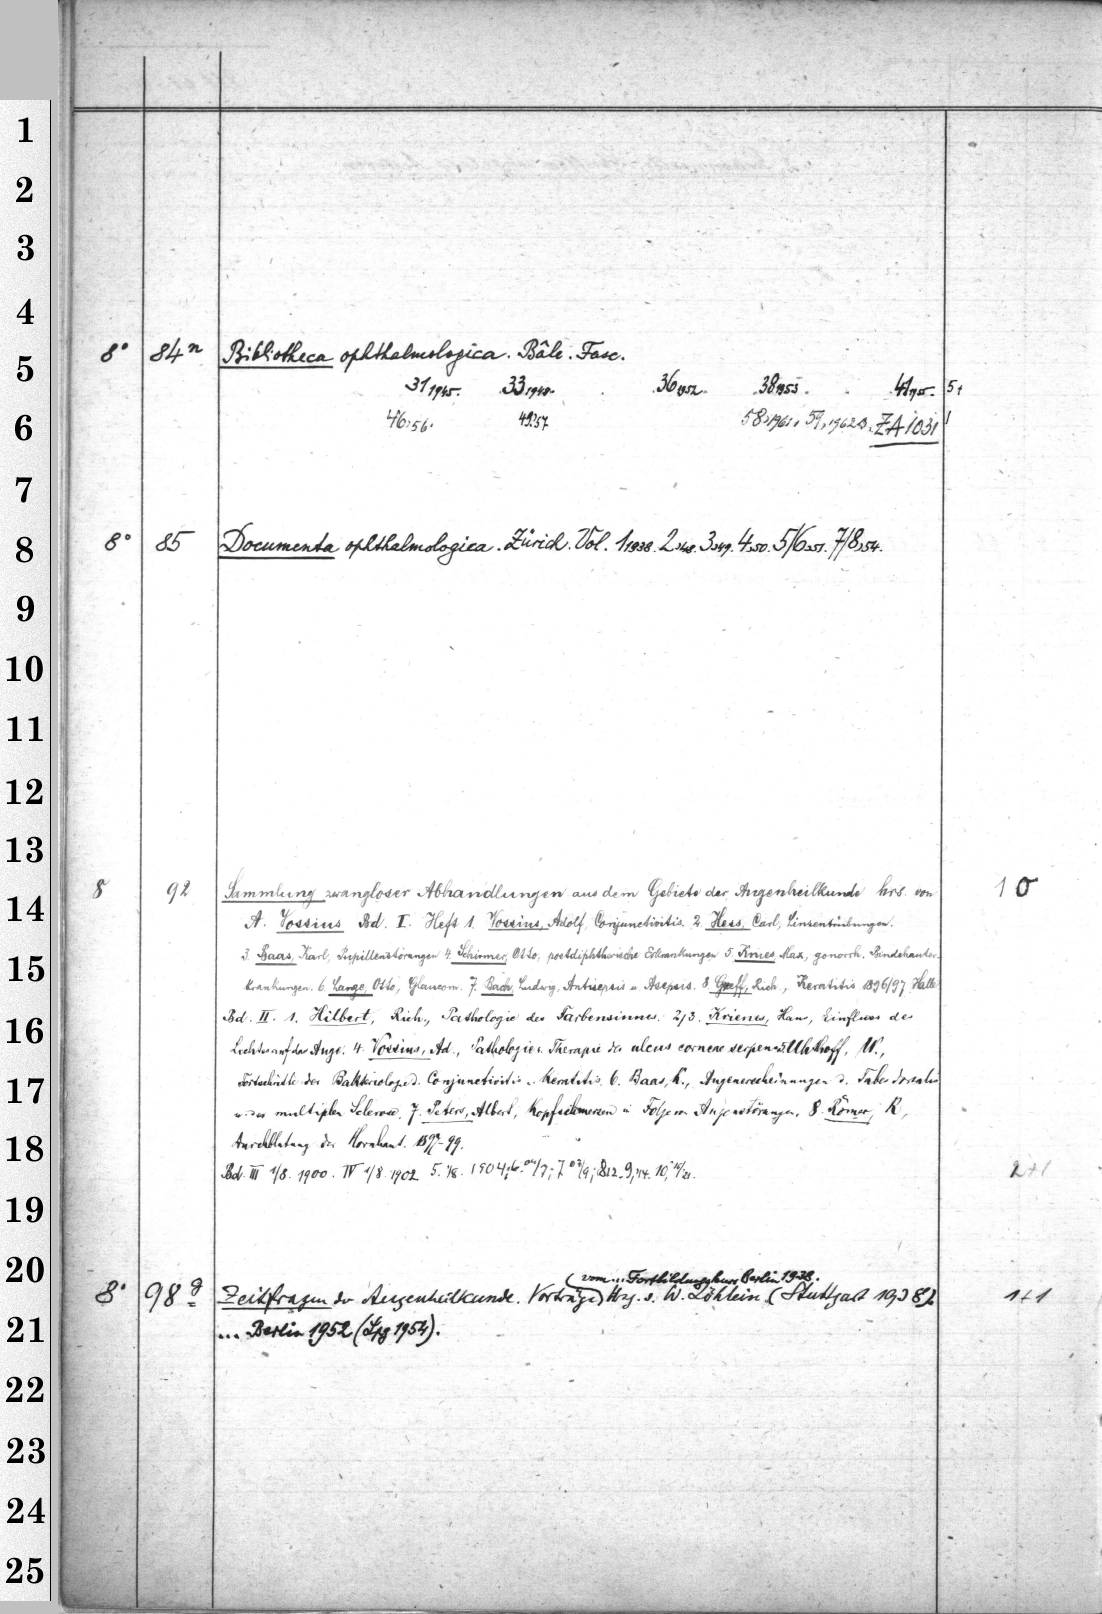 1
2
3
4
8° 84n Bibliotheca ophthalmologica. Bâle. Fasc.
5
31,1945. 33,1948. 36,1952. 38,1953. 41,1955. 5+
6
46,56. 49,57 58,1961, 59,1962 ZA 1031 1
7
8
8° 85 Documenta ophthalmologica. Zürich. Vol. 1,1938. 2,48. 3,49. 4,50. 5/6,51. 7/8,54.
9
10
11
12
13
8 92 Sammlung zwangloser Abhandlungen aus dem Gebiete der Augenheilkunde hrs. von 10
14
A. Vossius Bd. I. Heft 1. Vossius, Adolf, Conjunctivitis. 2. Hess, Carl, Linsentrübungen.
15
3. Baas, Karl, Pupillenstörungen 4. Schirmer, Otto, postdiphtherische Erkrankungen 5. Knies Max, gonorrh. Bindehauter-
krankungen. 6. Lange, Otto, Glaucom. 7. Bach, Ludwig. Antisepsis u. Asepsis. 8. Greeff, Rich., Keratitis 1896/97 Halle
16
Bd. II. 1. Hilbert, Rich., Pathologie des Farbensinnes. 2/3. Krienes, Hans, Einfluss des
Lichtes auf das Auge. 4. Vossius, Ad., Pathologie u. Therapie des ulcus corneae serpens 5. Uhthoff, W.,
17
Fortschritte der Bakteriologie d. Conjunctivitis u. Keratitis. 6. Baas, K., Augenerscheinungen d. Tabes dorsalis
u. der multiplen Sclerose. 7. Peters, Albert, Kopfschmerzen u Folge von Augenstörungen. 8. Römer, P.,
18
Durchblutung der Hornhaut. 1897-99.
Bd. III 1/8. 1900. IV 1/8. 1902 5. 1/8. 1904; 6. 04/7; 7. 07/9; 8,12. 9,14. 10, 14/21. 2+1
19
20
(vom... Fortbildungskurs Berlin 1938.
8° 98g Zeitfragen der Augenheilkunde. Vorträge) Hrsg. v. W. Löhlein. (Stuttgart 1938). 1+1
21
... Berlin 1952 (Lpg 1954).
22
23
24
25